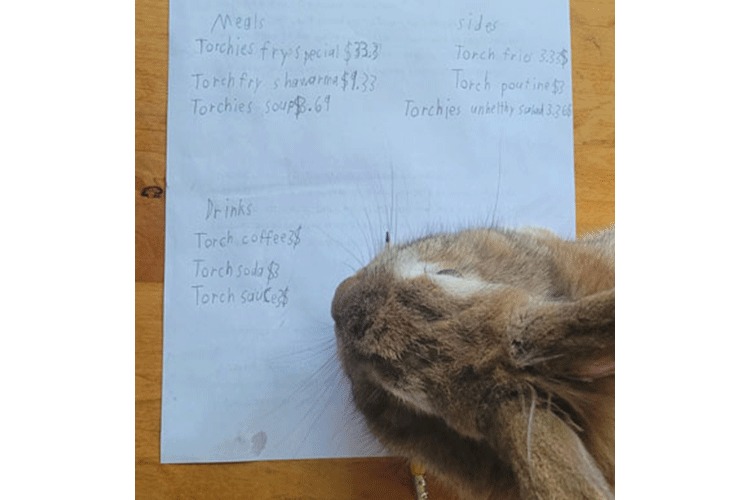 Meals
Torchies fry special $33.3
Torch fry shawarma $9.33
Torchies soup $3.69
sides
Torch fries 3.33$
Torch poutine $3
Torchies unhelthy salad 3.36$
Drinks
Torch coffee 3$
Torch soda $3
Torch sauce 3$